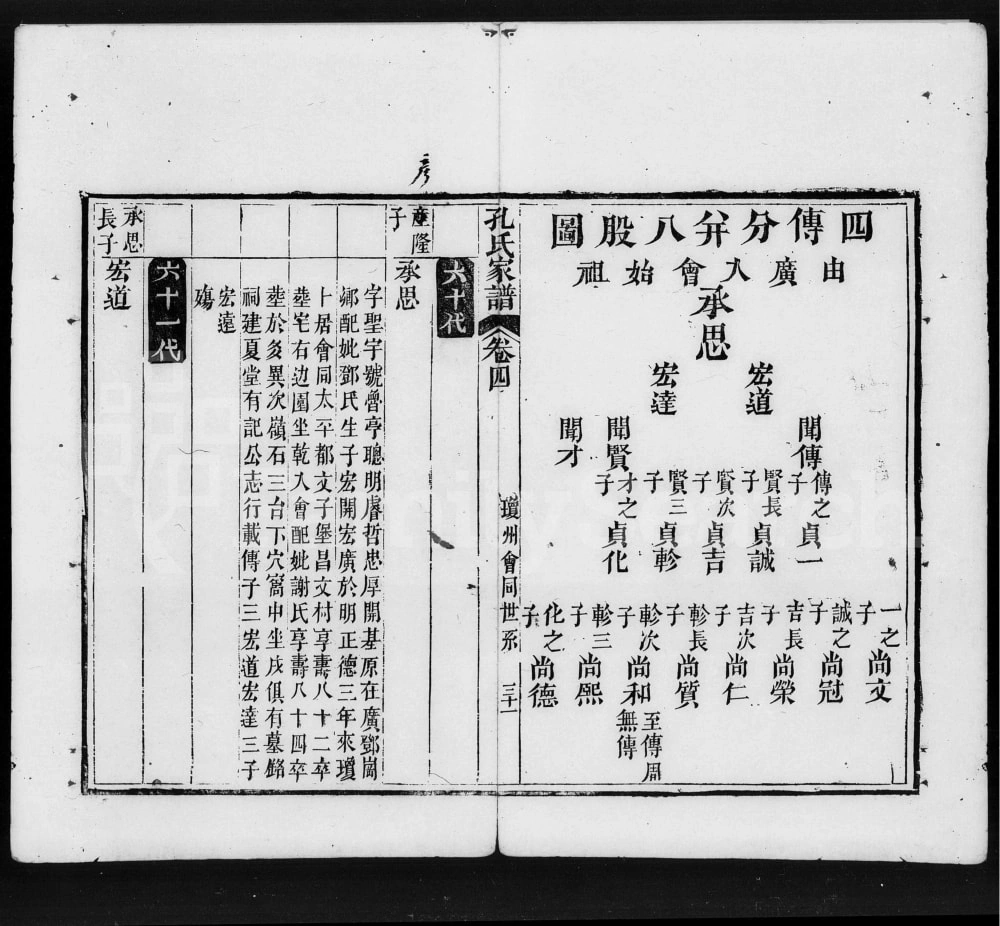 彦
四傳分弁八股圖
由廣入會始祖
承思
宏道
宏達
聞傳
聞賢
聞才
傳之子貞一
賢長子貞誠
賢次子貞吉
賢三子貞軫
才之子貞化
一之子尚文
誠之子尚冠
吉長子尚榮
吉次子尚仁
軫長子尚質
軫次子尚和至傳周無傳
軫三子尚熙
化之子尚德
孔氏家譜 卷四 瓊州會同世系 三十一
六十代
隆子 承思
字聖宇號魯亭聰明睿哲忠厚開基原在廣鄧崗
鄉配妣鄧氏生子宏開宏廣於明正德三年來瓊
卜居會同太平都文子堡昌文村享壽八十二卒
塟宅右边園坐乾入會配妣謝氏享壽八十四卒
塟於炙異次嶺石三台下穴窩申坐戌俱有墓銘
祠建夏堂有記公志行載傳子三宏道宏達三子
宏遠
殤
六十一代
承思長子 宏道